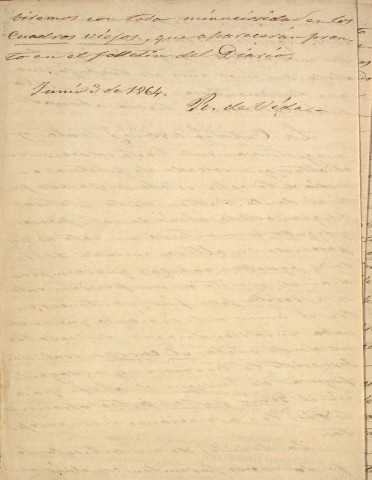 biremos con toda minuciosidad en los
cuadros viejos, que aparecerán pron-
to en el folletin del Diario.
Junio 3 de 1864.
R. de